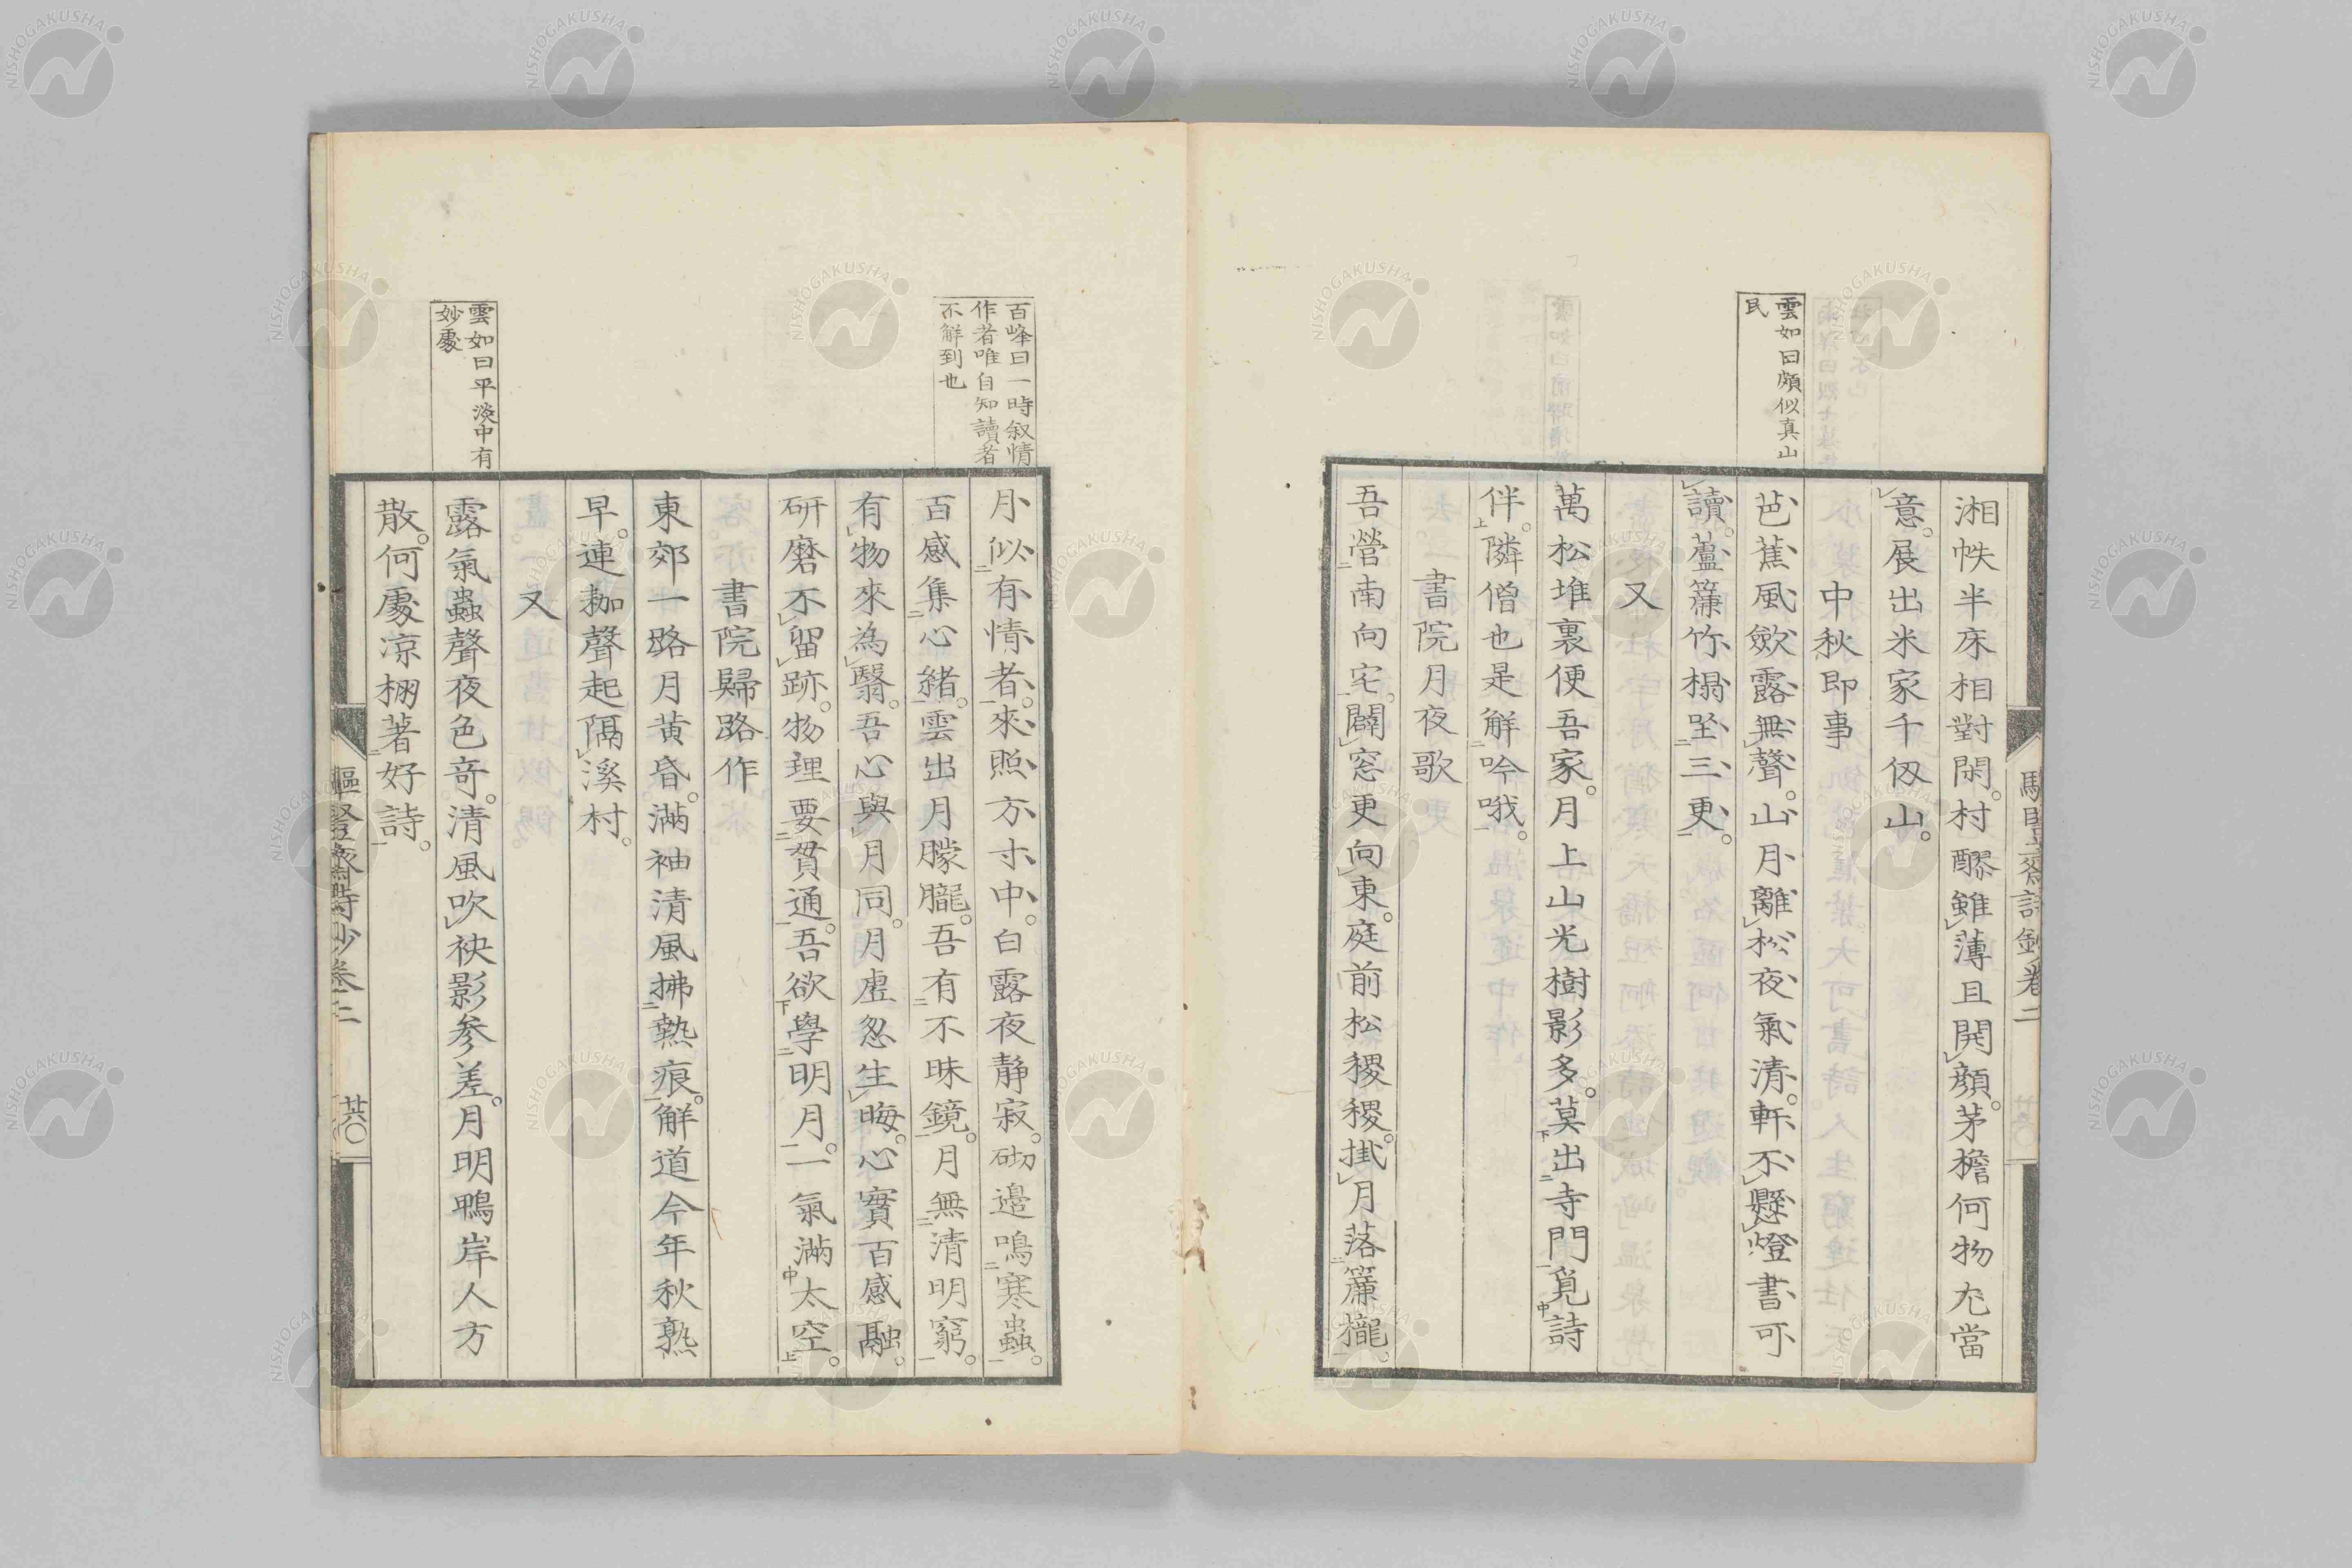 湘帙半床相對閑。村醪雖薄且開顔。茅檐何物尤當
意。展出米家千仭山。
中秋即事
雲如曰頗似真山
民
芭蕉風歛露無聲。山月離松夜氣清。軒不懸燈書可
讀。蘆簾竹榻坐三更。
又
萬松堆裏便吾家。月上山光樹影多。莫出寺門覓詩
伴。隣僧也是解吟哦。
書院月夜歌
吾營南向宅。闢窓更向東。庭前松稷稷。掛月落簾櫳。
百峰曰一時叙情
作者唯自知讀者
不解到也
月似有情者。來照方寸中。白露夜静寂。砌邊鳴寒蟲。
百感集心緒。雲出月朦朧。吾有不昧鏡。月無清明窮。
有物來為翳。吾心與月同。月虚忽生晦。心實百感融。
研磨不留跡。物理要貫通。吾欲學明月。一氣滿太空。
書院歸路作
東郊一路月黄昏。滿袖清風拂熱痕。解道今年秋熟
早。連耞聲起隔溪村。
又
雲如曰平淡中有
妙處
露氣蟲聲夜色奇。清風吹袂影参差。月明鴨岸人方
散。何處凉棚著好詩。
齋詩鈔卷二
廿六